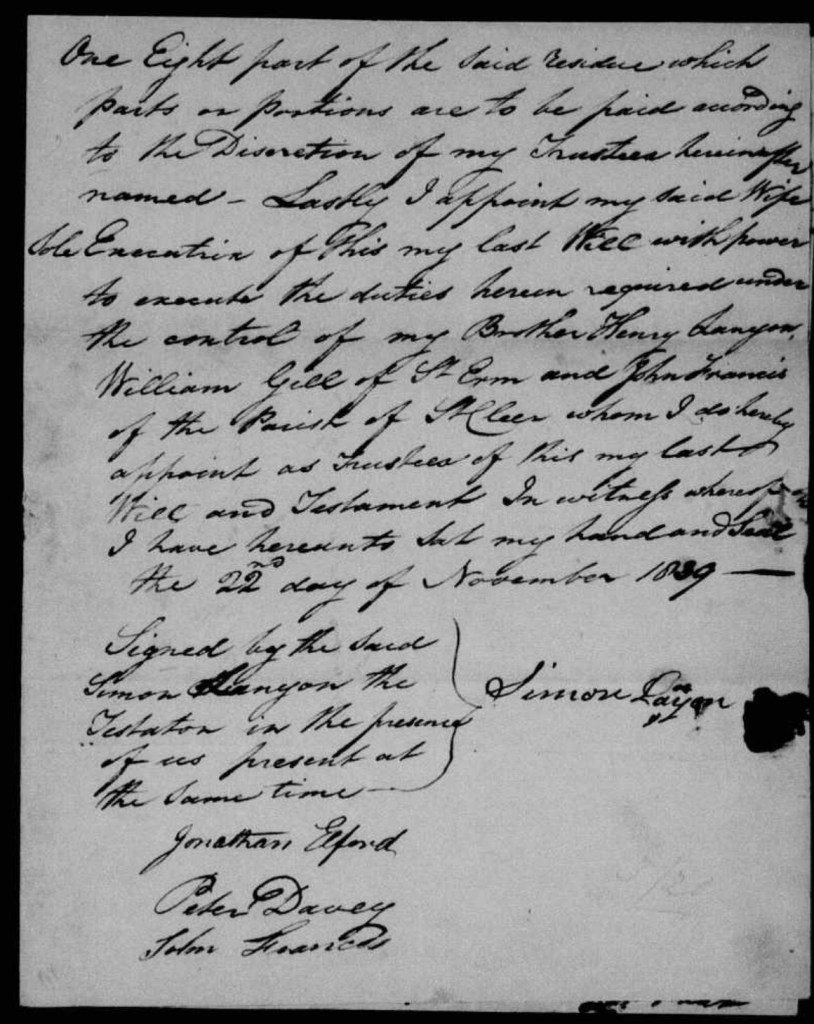 One Eight part of the said residue which
parts or portions are to be paid according
to the Discretion of my Trustees hereinafter
named - Lastly I appoint my said Wife
Sole Executrix of this my last Will with power
to execute the duties herein required under
the control of my Brother Henry Lanyon,
William Gill of St Erm and John Francis
of the Parish of St Cleer whom I do hereby
appoint as Trustees of this my last
Will and Testament In witness whereof
I have hereunto Set my hand and Seal
the 22nd day of November 1839 —
Signed by the said
Simon Lanyon the
Testator in the presence
of us present at
the same time —
Simon Layon
Jonathan Elford
Peter Davey
John Francis